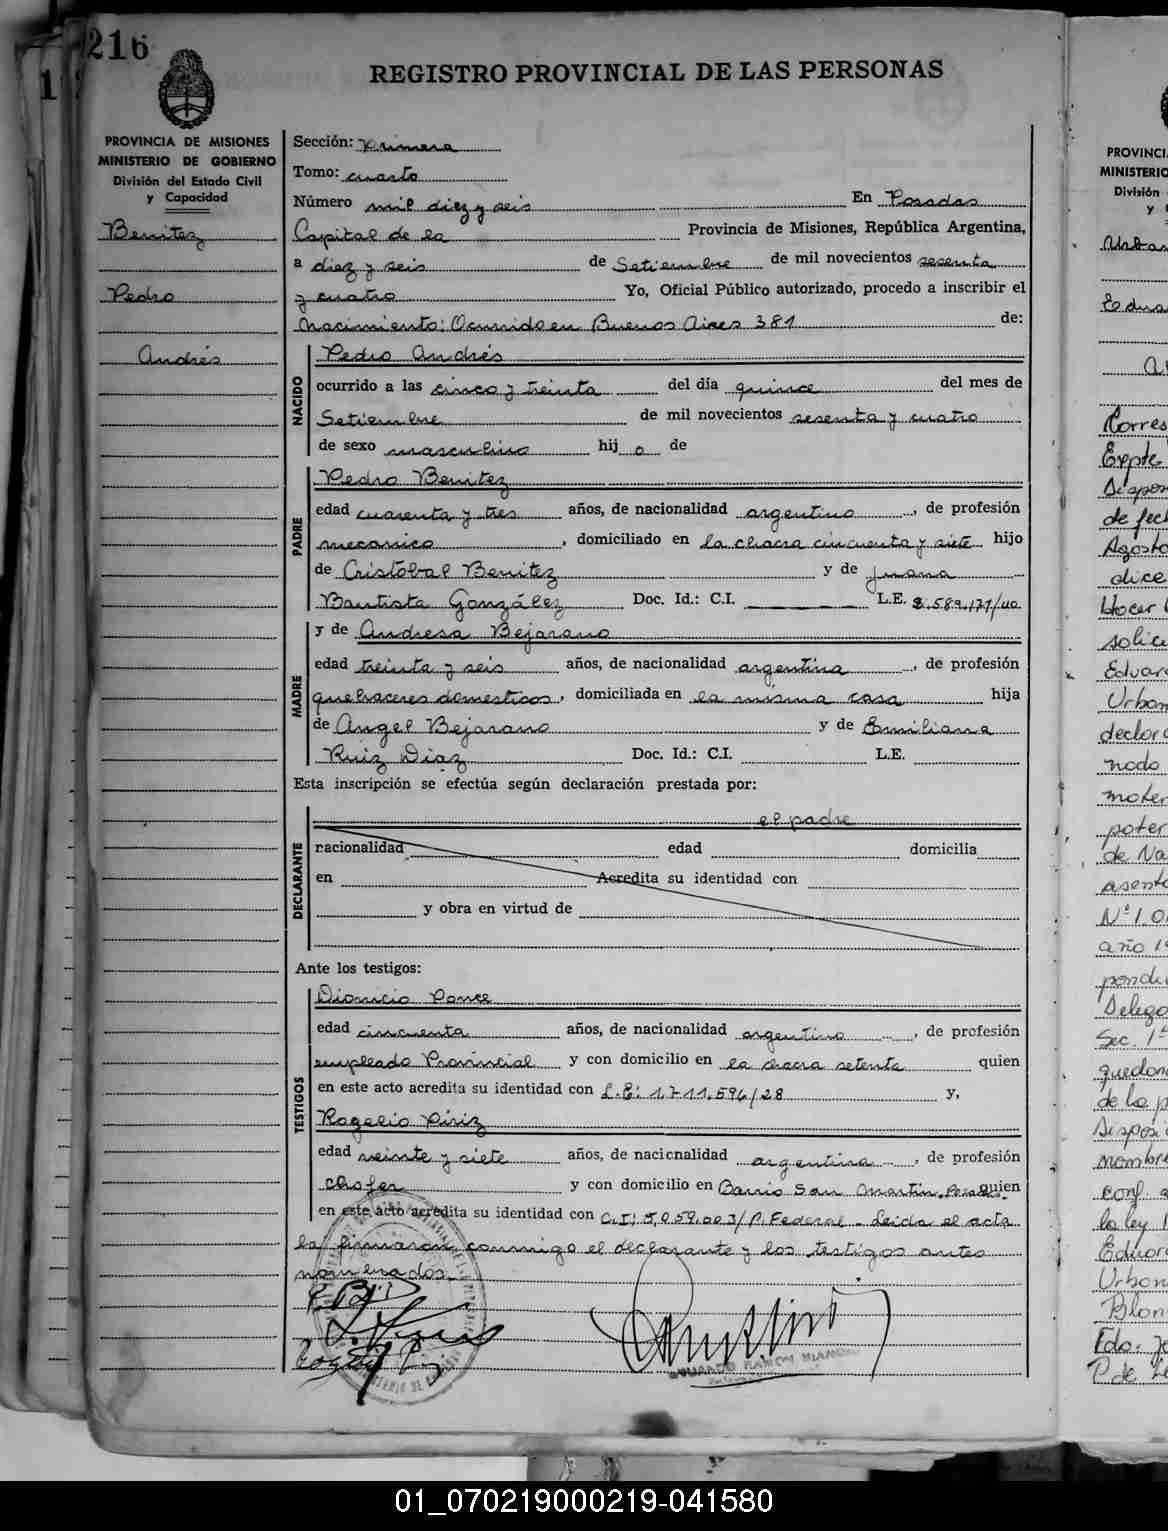 216
REGISTRO PROVINCIAL DE LAS PERSONAS
PROVINCIA DE MISIONES
MINISTERIO DE GOBIERNO
División del Estado Civil
y Capacidad
Benitez
Pedro
Andrés
Sección: Primera
Tomo: cuarto
Número mil diez y seis En Posadas
Capital de la Provincia de Misiones, República Argentina,
a diez y seis de Setiembre de mil novecientos sesenta
y cuatro Yo, Oficial Público autorizado, procedo a inscribir el
Nacimiento: Ocurrido en Buenos Aires 381 de:
NACIDO
Pedro Andrés
ocurrido a las cinco y treinta del día quince del mes de
Setiembre de mil novecientos sesenta y cuatro
de sexo masculino hij o de
PADRE
Pedro Benitez
edad cuarenta y tres años, de nacionalidad argentino, de profesión
mecanico, domiciliado en la chacra cincuenta y siete hijo
de Cristóbal Benitez y de Juana
Bautista González Doc. Id.: C.I. L.E.
MADRE
y de Andresa Bejarano
edad treinta y seis años, de nacionalidad argentina, de profesión
quehaceres domesticos, domiciliada en la misma casa hija
de Angel Bejarano y de Emiliana
Ruiz Diaz Doc. Id.: C.I. L.E.
Esta inscripción se efectúa según declaración prestada por:
DECLARANTE
el padre
nacionalidad edad domicilia
en Acredita su identidad con
y obra en virtud de
Ante los testigos:
TESTIGOS
Dionicio Ponce
edad cincuenta años, de nacionalidad argentino, de profesión
empleado Provincial y con domicilio en la chacra setenta quien
en este acto acredita su identidad con L.E: 1.711.596/28 y,
Rogelio Piriz
edad veinte y siete años, de nacionalidad argentina, de profesión
chofer y con domicilio en Barrio San Martin, Posadas. quien
en este acto acredita su identidad con C.I: 5.059.003/P. Federal - Leida el acta
la firmaron conmigo el declarante y los testigos antes
nombrados.
PROVINCI
MINISTERIO
División
y
Urban
Edua
Corres
Expte
Dispos
de fech
Agosto
dice
solici
Eduar
Urban
declara
nado
mater
pater
de Na
asent
Nº 1.0
año 1
Delega
Sec. 1ª
quedan
de la p
Disposi
nombre
conf. a
la ley 1
Eduar
Urban
Blan
Fdo: J
01_070219000219-041580